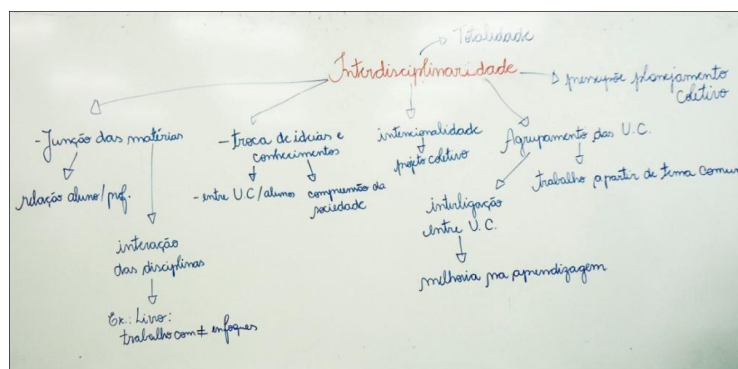 Totalidade
Interdisciplinaridade
pressupõe planejamento
coletivo
- Junção das matérias
relação aluno/prof.
interação
das disciplinas
Ex.: Livro:
trabalho com ≠ enfoques
- troca de ideias e
conhecimentos
- entre UC/alunos
compreensão da
sociedade
intencionalidade
projeto coletivo
Agrupamento das U.C.
interligação
entre U.C.
melhoria na aprendizagem
trabalho a partir de tema comum